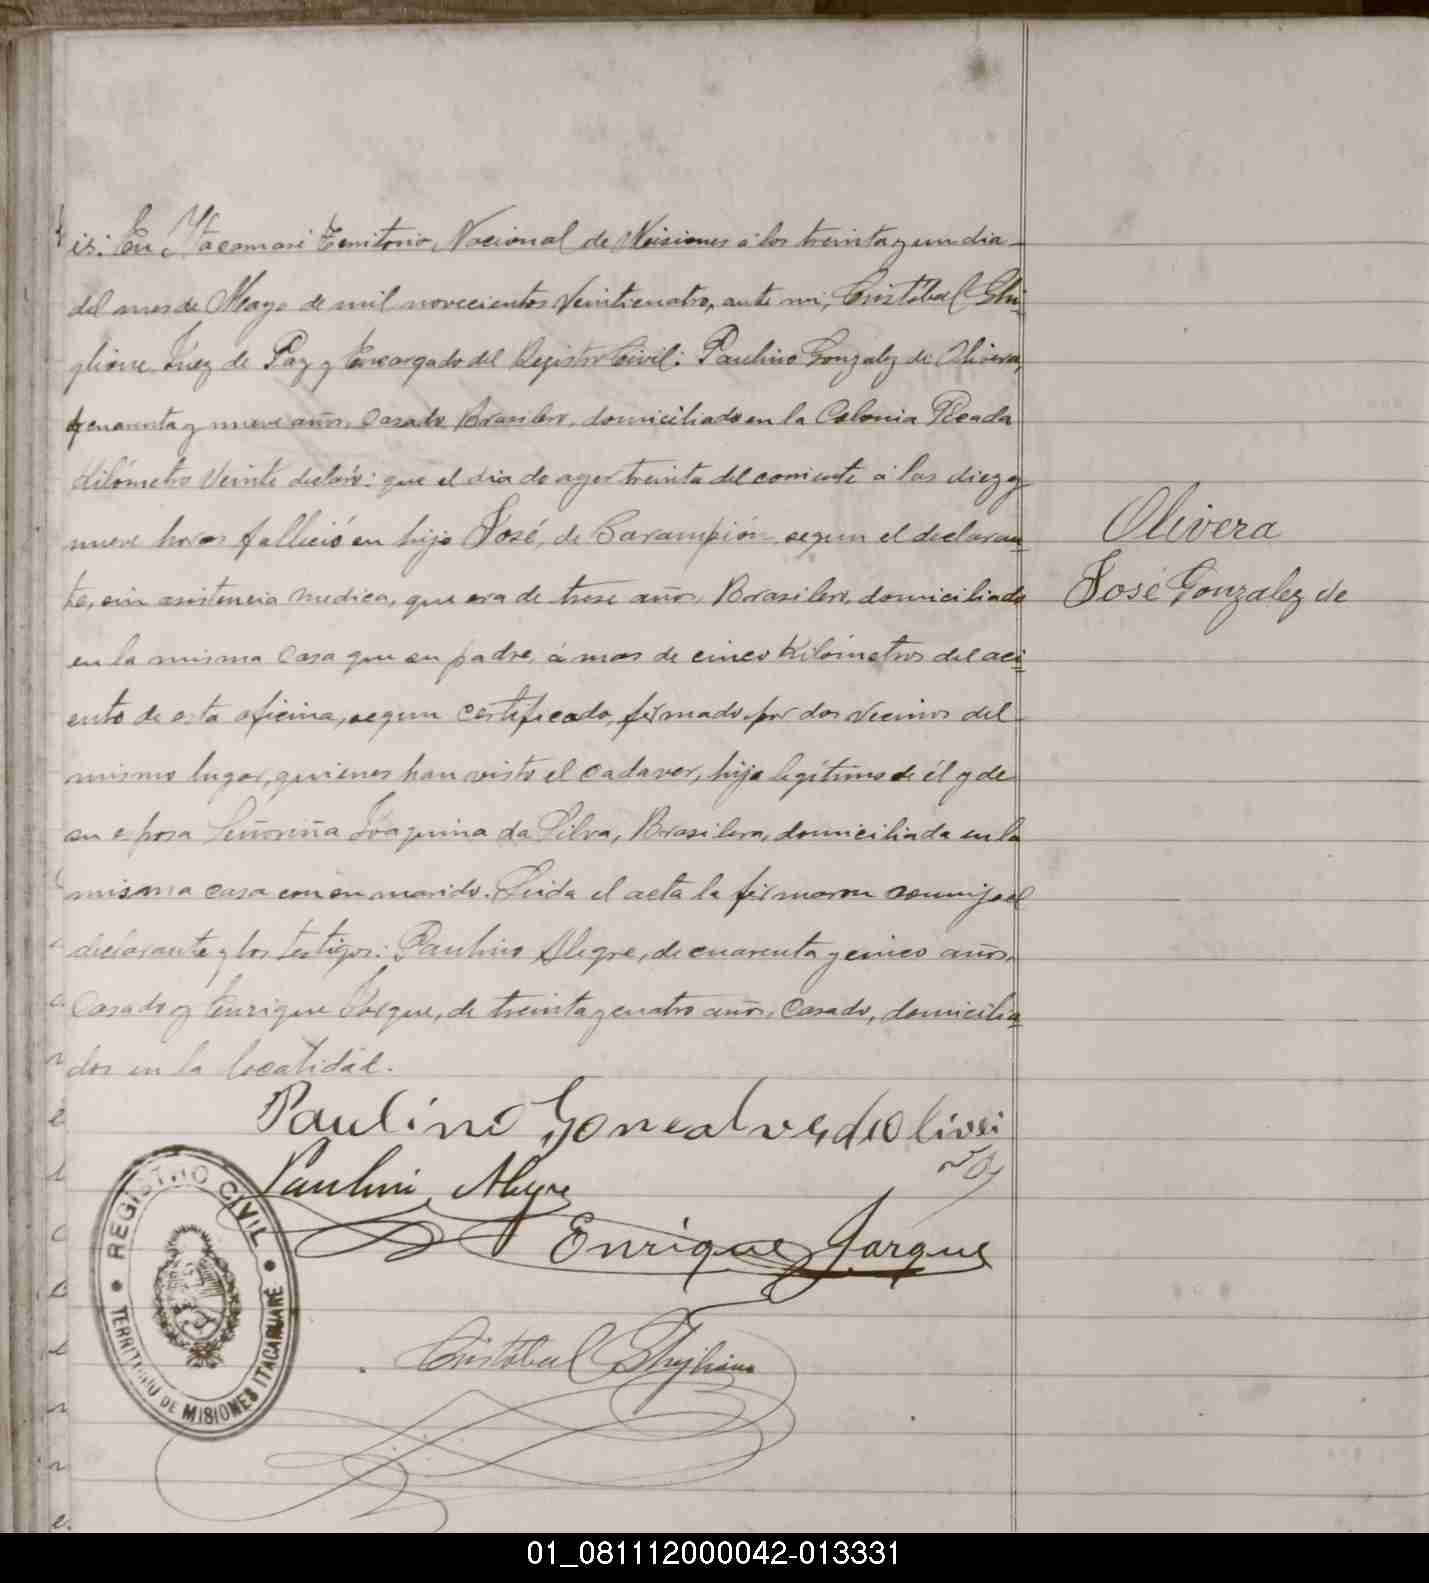 is: En Itacaruaré Territorio Nacional de Misiones á los treinta y un dia
del mes de Mayo de mil novecientos veinticuatro, ante mi, Cristóbal Ghi-
glione Juez de Paz y Encargado del Registro Civil: Paulino Gonzalez de Olivera,
cuarenta y nueve años, Casado, Brasilero, domiciliado en la Colonia Picada
Kilómetro Veinte declaró: que el dia de ayer treinta del corriente á las diez y
nueve horas falleció su hijo José, de Sarampión, segun el declaran-
te, sin asistencia medica, que era de trese años, Brasilero, domiciliado
en la misma casa que su padre, á mas de cinco Kilómetros del aci-
ento de esta oficina, segun certificado, firmado por dos vecinos del
mismo lugar, quienes han visto el cadaver, hijo legítimo de él y de
su esposa Señoriña Joaquina da Silva, Brasilera, domiciliada en la
misma casa con su marido. Leida el acta la firmaron conmigo el
declarante y los testigos: Paulino Alegre, de cuarenta y cinco años,
Casado y Enrique Jorque, de treinta y cuatro años, Casado, domicilia-
dos en la localidad.
Olivera
José Gonzalez de
Paulino Goncalves de Olivei
ra
Paulino Alegre
Enrique Jarque
Cristóbal Ghiglione
REGISTRO CIVIL
TERRITORIO DE MISIONES ITACARUARÉ
01_081112000042-013331